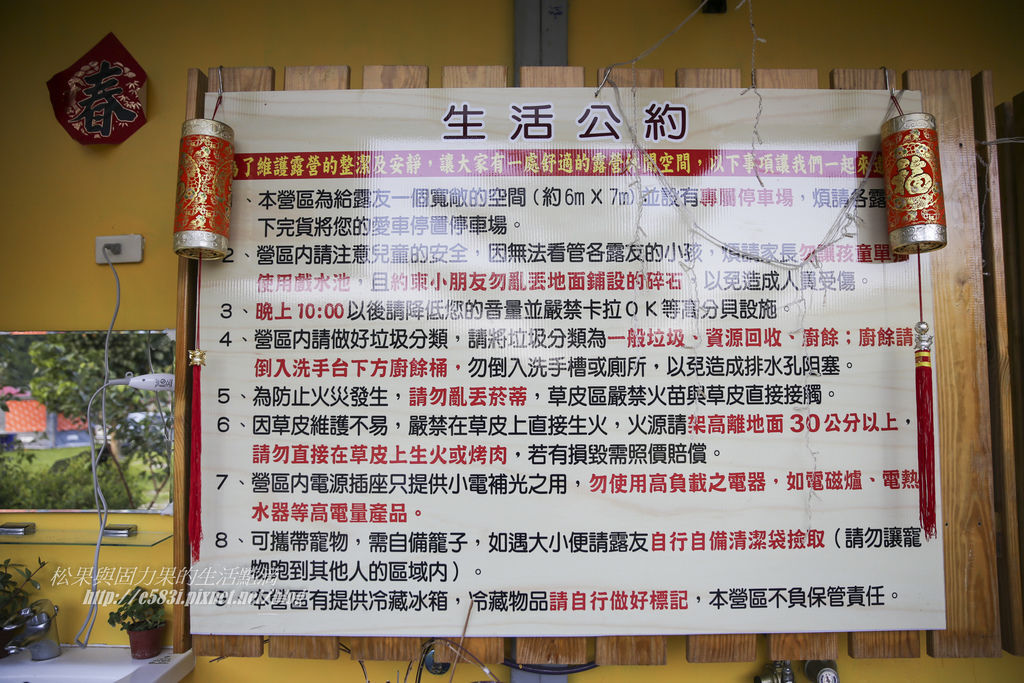 春
生活公約
為了維護露營的整潔及安靜，讓大家有一處舒適的露營休閒空間，以下事項讓我們一起來
福
、本營區為給露友一個寬敞的空間（約6m X 7m）並設有專屬停車場，煩請各露
下完貨將您的愛車停置停車場。
2、營區內請注意兒童的安全，因無法看管各露友的小孩，煩請家長勿讓孩童單
使用戲水池，且約束小朋友勿亂丟地面鋪設的碎石，以免造成人員受傷。
3、晚上10:00以後請降低您的音量並嚴禁卡拉OK等高分貝設施。
4、營區內請做好垃圾分類，請將垃圾分類為一般垃圾、資源回收、廚餘；廚餘請
倒入洗手台下方廚餘桶，勿倒入洗手槽或廁所，以免造成排水孔阻塞。
5、為防止火災發生，請勿亂丟菸蒂，草皮區嚴禁火苗與草皮直接接觸。
6、因草皮維護不易，嚴禁在草皮上直接生火，火源請架高離地面30公分以上，
請勿直接在草皮上生火或烤肉，若有損毀需照價賠償。
7、營區內電源插座只提供小電補光之用，勿使用高負載之電器，如電磁爐、電熱
水器等高電量產品。
8、可攜帶寵物，需自備籠子，如遇大小便請露友自行自備清潔袋撿取（請勿讓寵
物跑到其他人的區域內）。
9、本營區有提供冷藏冰箱，冷藏物品請自行做好標記，本營區不負保管責任。
松果與固力果的生活點滴
http://c5831.pixnet.net/blog